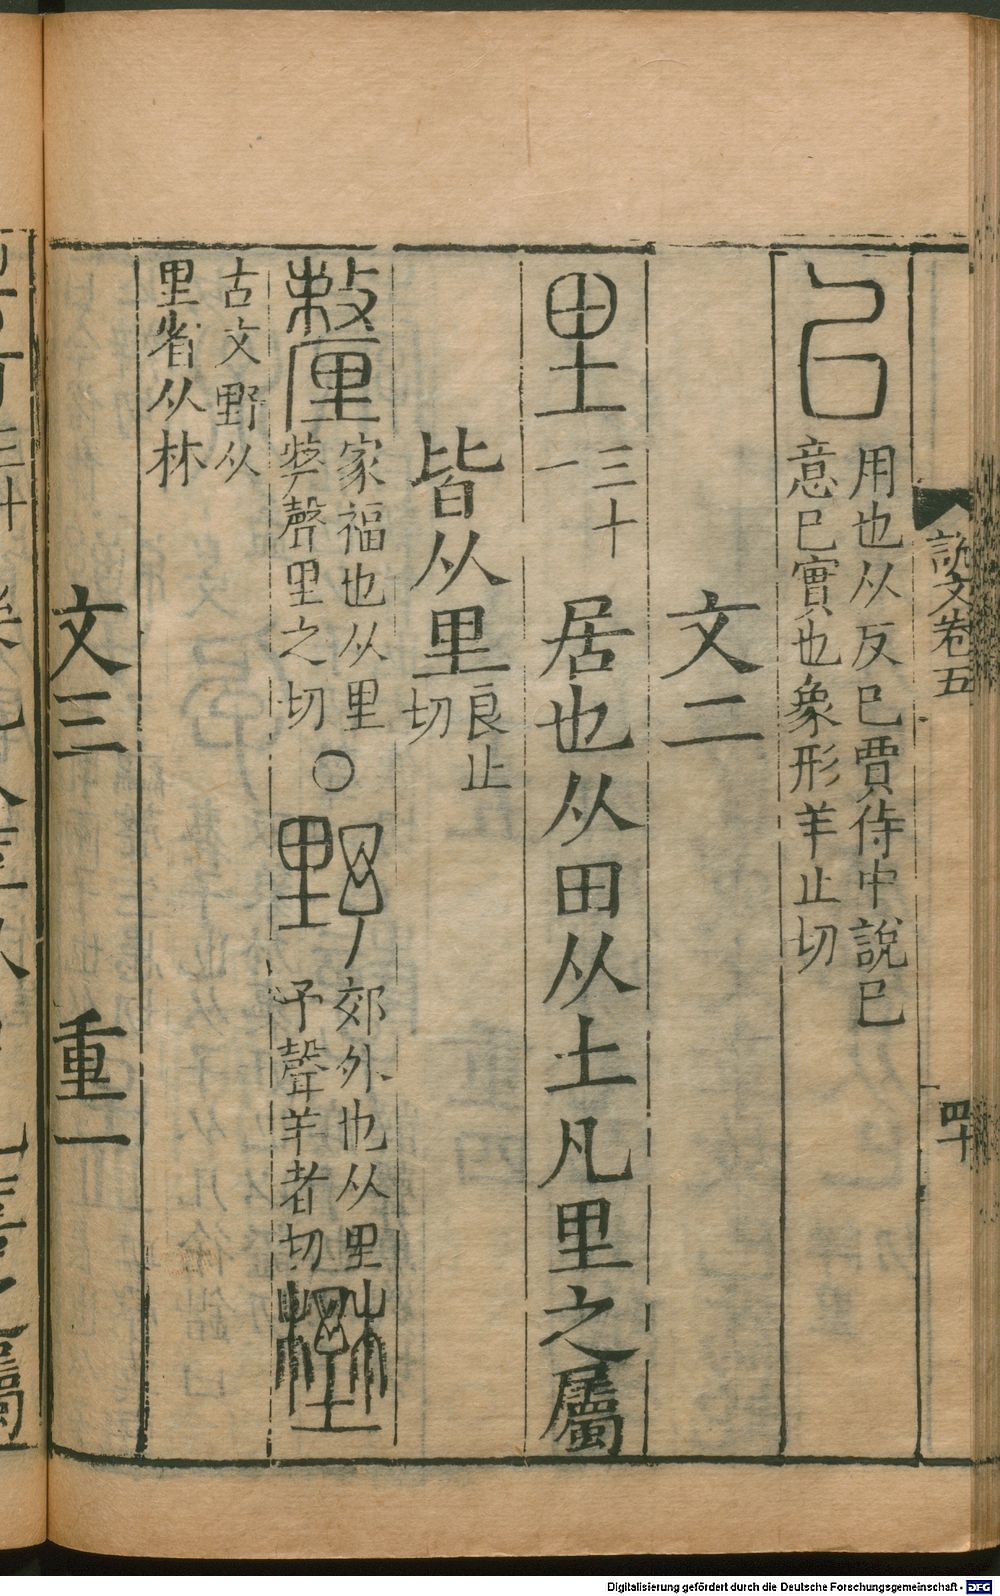 說文卷五
四十
㠯
用也从反巳賈侍中說巳
意巳實也象形羊止切
文二
里
三十
一
居也从田从土凡里之屬
皆从里
良止
切
釐
家福也从里
𠩺聲里之切
○
野
郊外也从里
予聲羊者切
壄
古文野从
里省从林
文三 重一
Digitalisierung gefördert durch die Deutsche Forschungsgemeinschaft - DFG